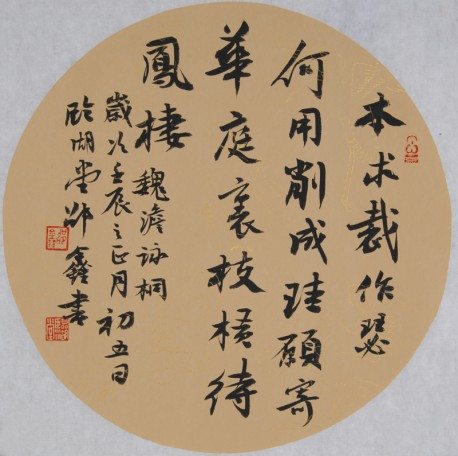 本求裁作瑟
何用削成珪願寄
華庭裏枝橫待
鳳棲 魏澹詠桐
歲次壬辰之正月初五日
臨湖堂 鑫書